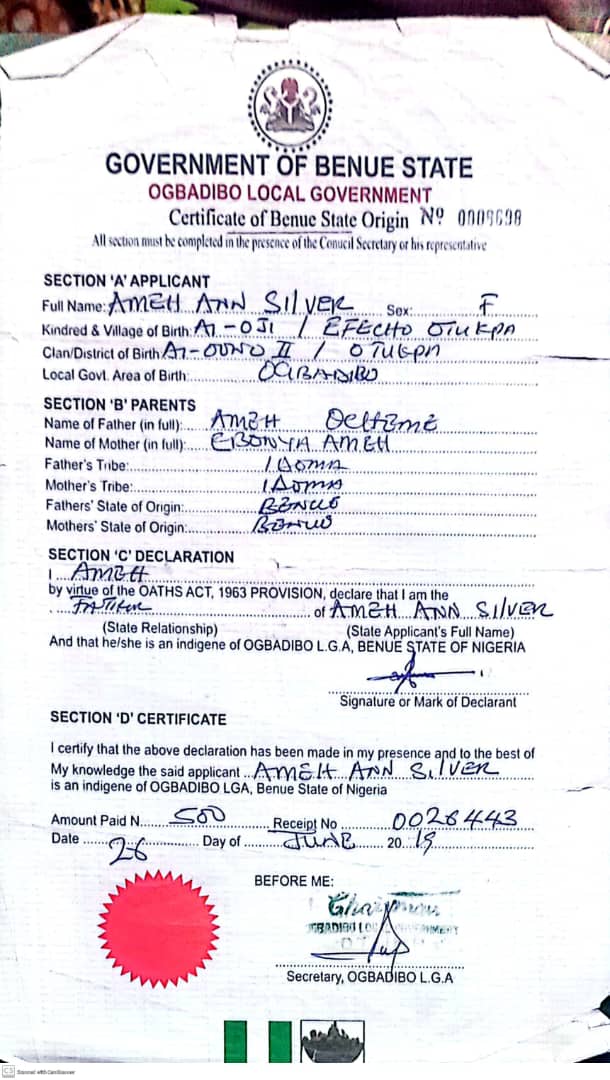 GOVERNMENT OF BENUE STATE
OGBADIBO LOCAL GOVERNMENT
Certificate of Benue State Origin Nº
All section must be completed in the presence of the Conucil Secretary or his representative
SECTION 'A' APPLICANT
Full Name: AMEH ANN SILVER Sex: F
Kindred & Village of Birth: AI-OJI / EFECHO OTUKPA
Clan/District of Birth AI-OONO II / OTUKPA
Local Govt. Area of Birth: OGBADIBO
SECTION 'B' PARENTS
Name of Father (in full): AMEH
Name of Mother (in full): EBONYA AMEH
Father's Tribe: IDOMA
Mother's Tribe: IDOMA
Fathers' State of Origin: BENUE
Mothers' State of Origin: BENUE
SECTION 'C' DECLARATION
I AMEH
by virtue of the OATHS ACT, 1963 PROVISION, declare that I am the
FATHER of AMEH ANN SILVER
(State Relationship) (State Applicant's Full Name)
And that he/she is an indigene of OGBADIBO L.G.A, BENUE STATE OF NIGERIA
Signature or Mark of Declarant
SECTION 'D' CERTIFICATE
I certify that the above declaration has been made in my presence and to the best of
My knowledge the said applicant AMEH ANN SILVER
is an indigene of OGBADIBO LGA, Benue State of Nigeria
Amount Paid N 500 Receipt No 0026443
Date 26 Day of JUNE 20 19
BEFORE ME:
Chairman
OGBADIBO LOCAL GOVERNMENT
Secretary, OGBADIBO L.G.A
CS Scanned with CamScanner